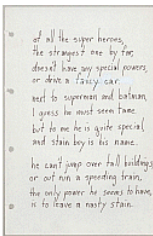 of all the super heroes,
the strangest one by far,
doesn't have any special powers,
or drive a fancy car.
next to superman and batman,
i guess he must seem tame
but to me he is quite special,
and stain boy is his name.
he can't jump over tall buildings,
or out run a speeding train,
the only power he seems to have,
is to leave a nasty stain.